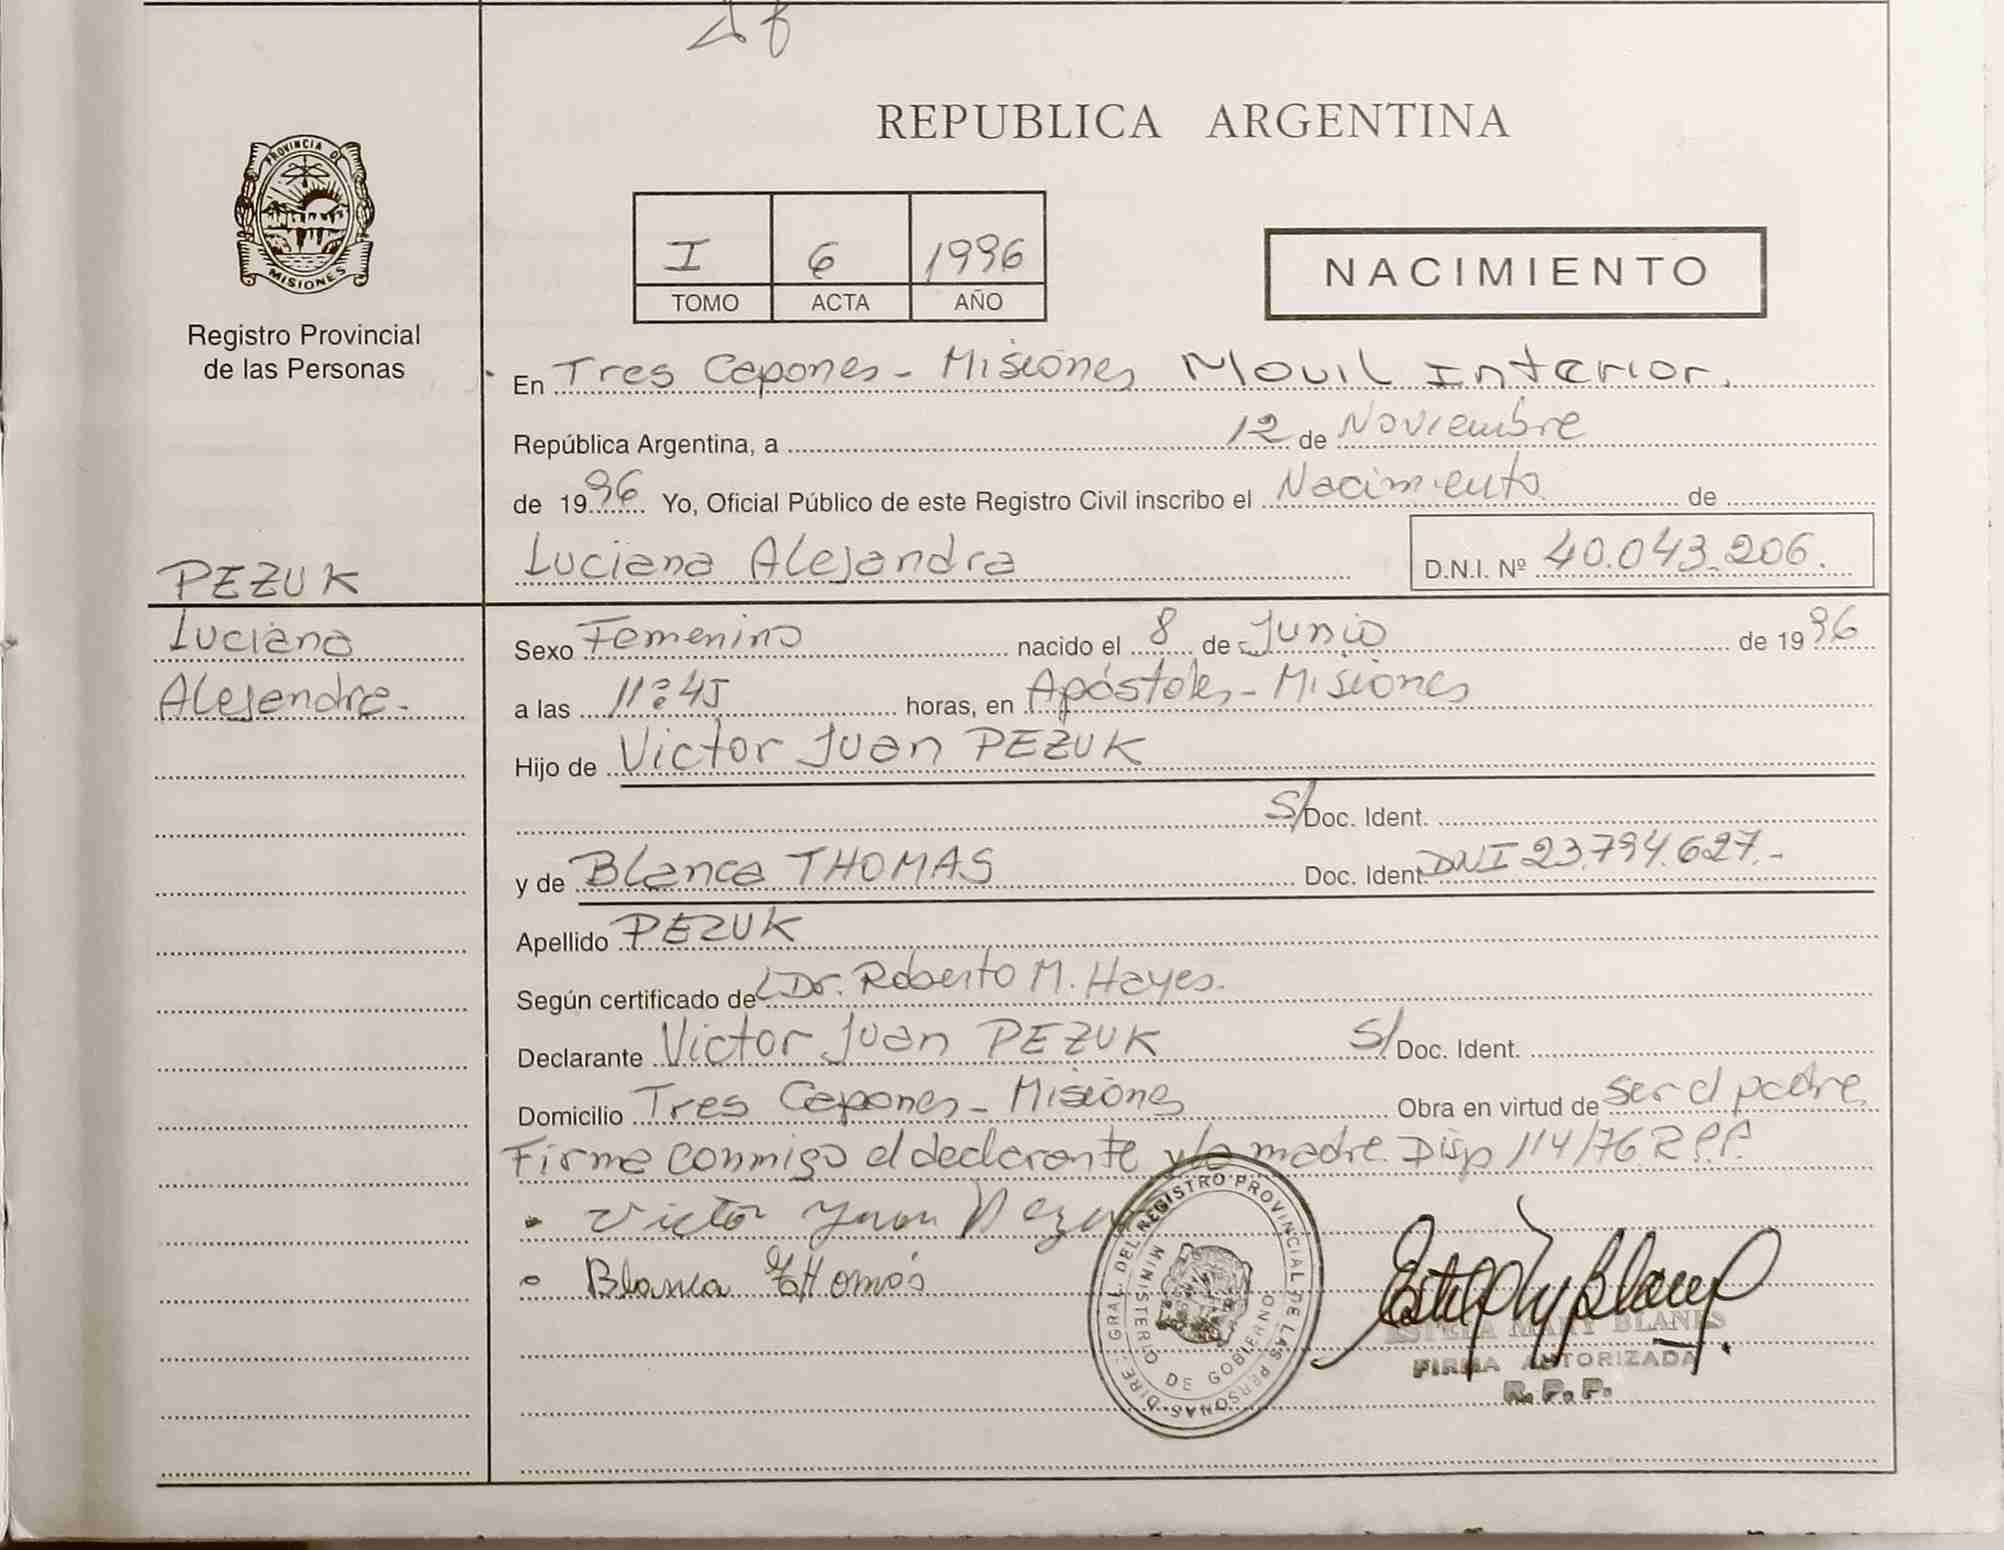 REPUBLICA ARGENTINA
PROVINCIA DE
MISIONES
Registro Provincial
de las Personas
I 6 1996
TOMO ACTA AÑO
NACIMIENTO
En Tres Capones - Misiones Movil Interior.
República Argentina, a 12 de Noviembre
de 1996 Yo, Oficial Público de este Registro Civil inscribo el Nacimiento de
Luciana Alejandra D.N.I. Nº 40.043.206.
PEZUK
Luciana
Alejandra.-
Sexo Femenino nacido el 8 de Junio de 1996
a las 11:45 horas, en Apóstoles - Misiones
Hijo de Victor Juan PEZUK
S/Doc. Ident.
y de Blanca THOMAS Doc. Ident. DNI 23.794.627.-
Apellido PEZUK
Según certificado de Dr. Roberto M. Hayes.
Declarante Victor Juan PEZUK S/Doc. Ident.
Domicilio Tres Capones - Misiones Obra en virtud de ser el padre
Firma conmigo el declarante y la madre. Disp 114/76 R.P.P.
Victor Juan Pezuk
Blanca Thomas
DIRE. GRAL. DEL REGISTRO PROVINCIAL DE LAS PERSONAS
MINISTERIO DE GOBIERNO
ESTELA MARY BLANES
FIRMA AUTORIZADA
R. P. P.